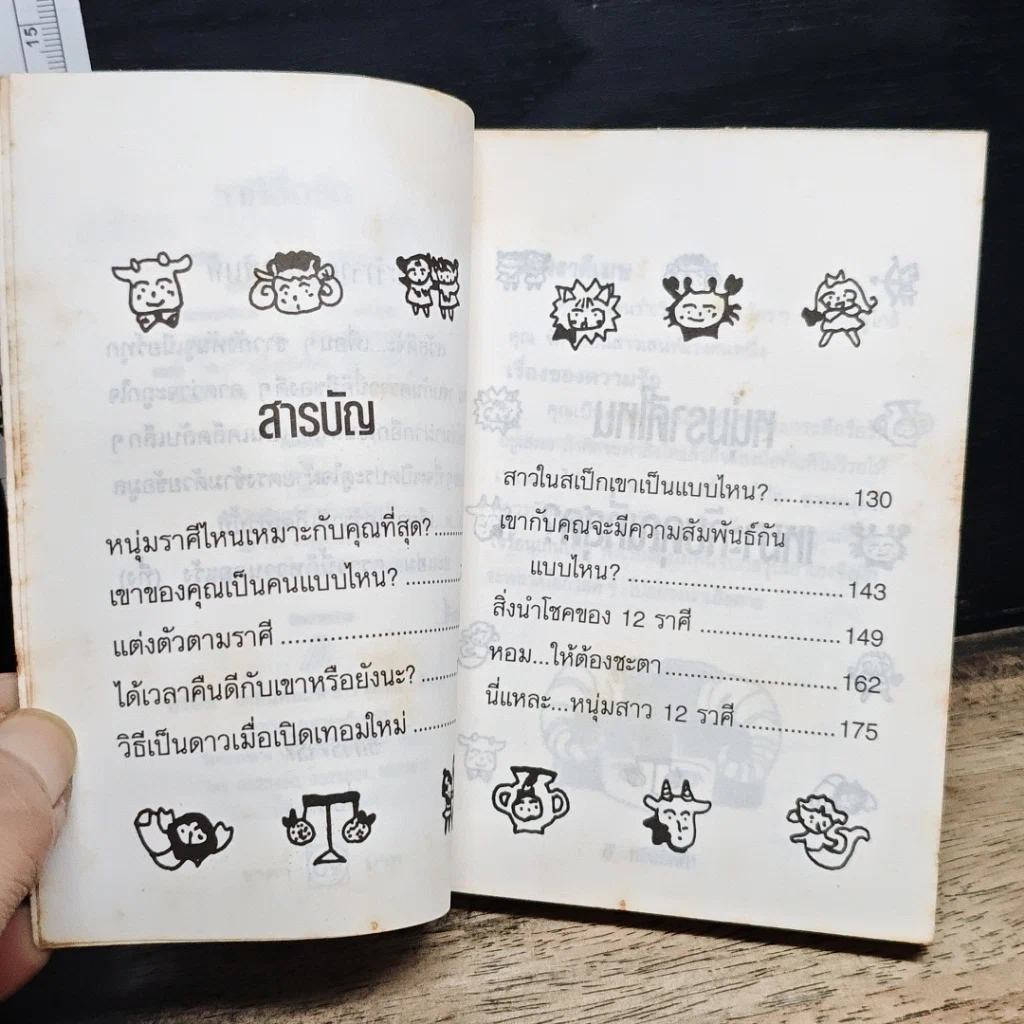 15
สารบัญ
หนุ่มราศีไหนเหมาะกับคุณที่สุด?......
เขาของคุณเป็นคนแบบไหน? ........
แต่งตัวตามราศี ..........................
ได้เวลาคืนดีกับเขาหรือยังนะ? .....
วิธีเป็นดาวเมื่อเปิดเทอมใหม่ ......
สาวในสเป็กเขาเป็นแบบไหน? ........... 130
เขากับคุณจะมีความสัมพันธ์กัน
แบบไหน? ................................ 143
สิ่งนำโชคของ 12 ราศี .................... 149
หอม...ให้ต้องชะตา ......................... 162
นี่แหละ...หนุ่มสาว 12 ราศี .............. 175